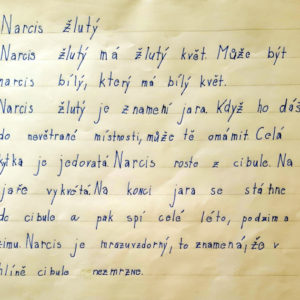 Narcis žlutý
Narcis žlutý má žlutý květ. Může být
narcis bílý, který má bílý květ.
Narcis žlutý je znamení jara. Když ho dáš
do nevětrané místnosti, může tě omámit. Celá
kytka je jedovatá. Narcis roste z cibule. Na
jaře vykvétá. Na konci jara se stáhne
do cibule a pak spí celé léto, podzim a
zimu. Narcis je mrazuvzdorný, to znamená, že v
hlíně cibule nezmrzne.